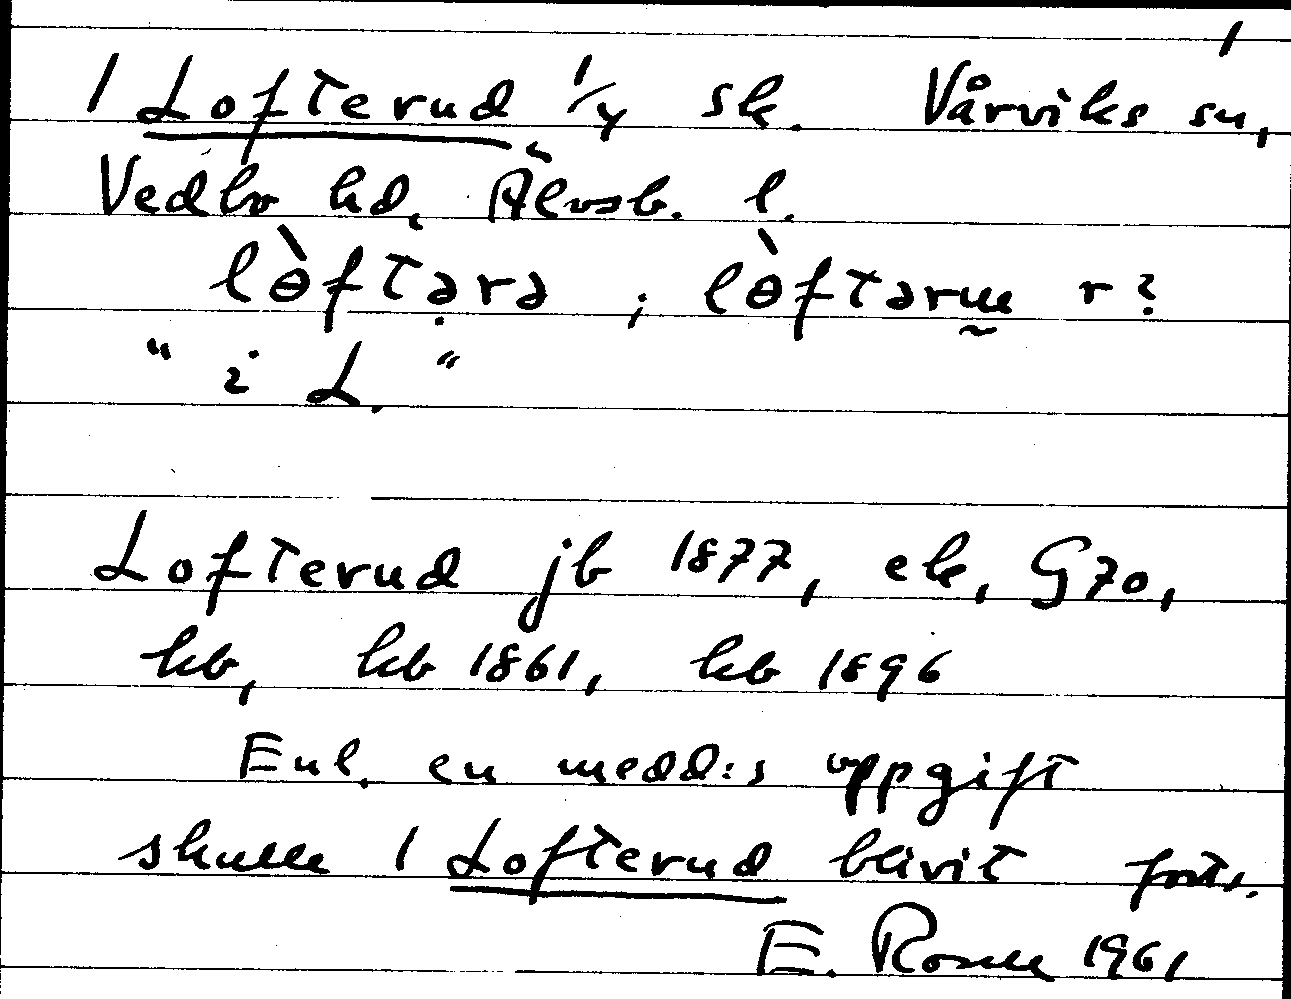 1
1 Lofterud 1/4 sk. Vårviks sn,
Vedbo hd, Älvsb. l.
lə̀ftərə ; lə̀ftərɯ r?
" i L. "
Lofterud jb 1877, ek, G70,
kb, kb 1861, kb 1896
Enl. en medd:s uppgift
skulle 1 Lofterud blivit forts.
E. Rosell 1961